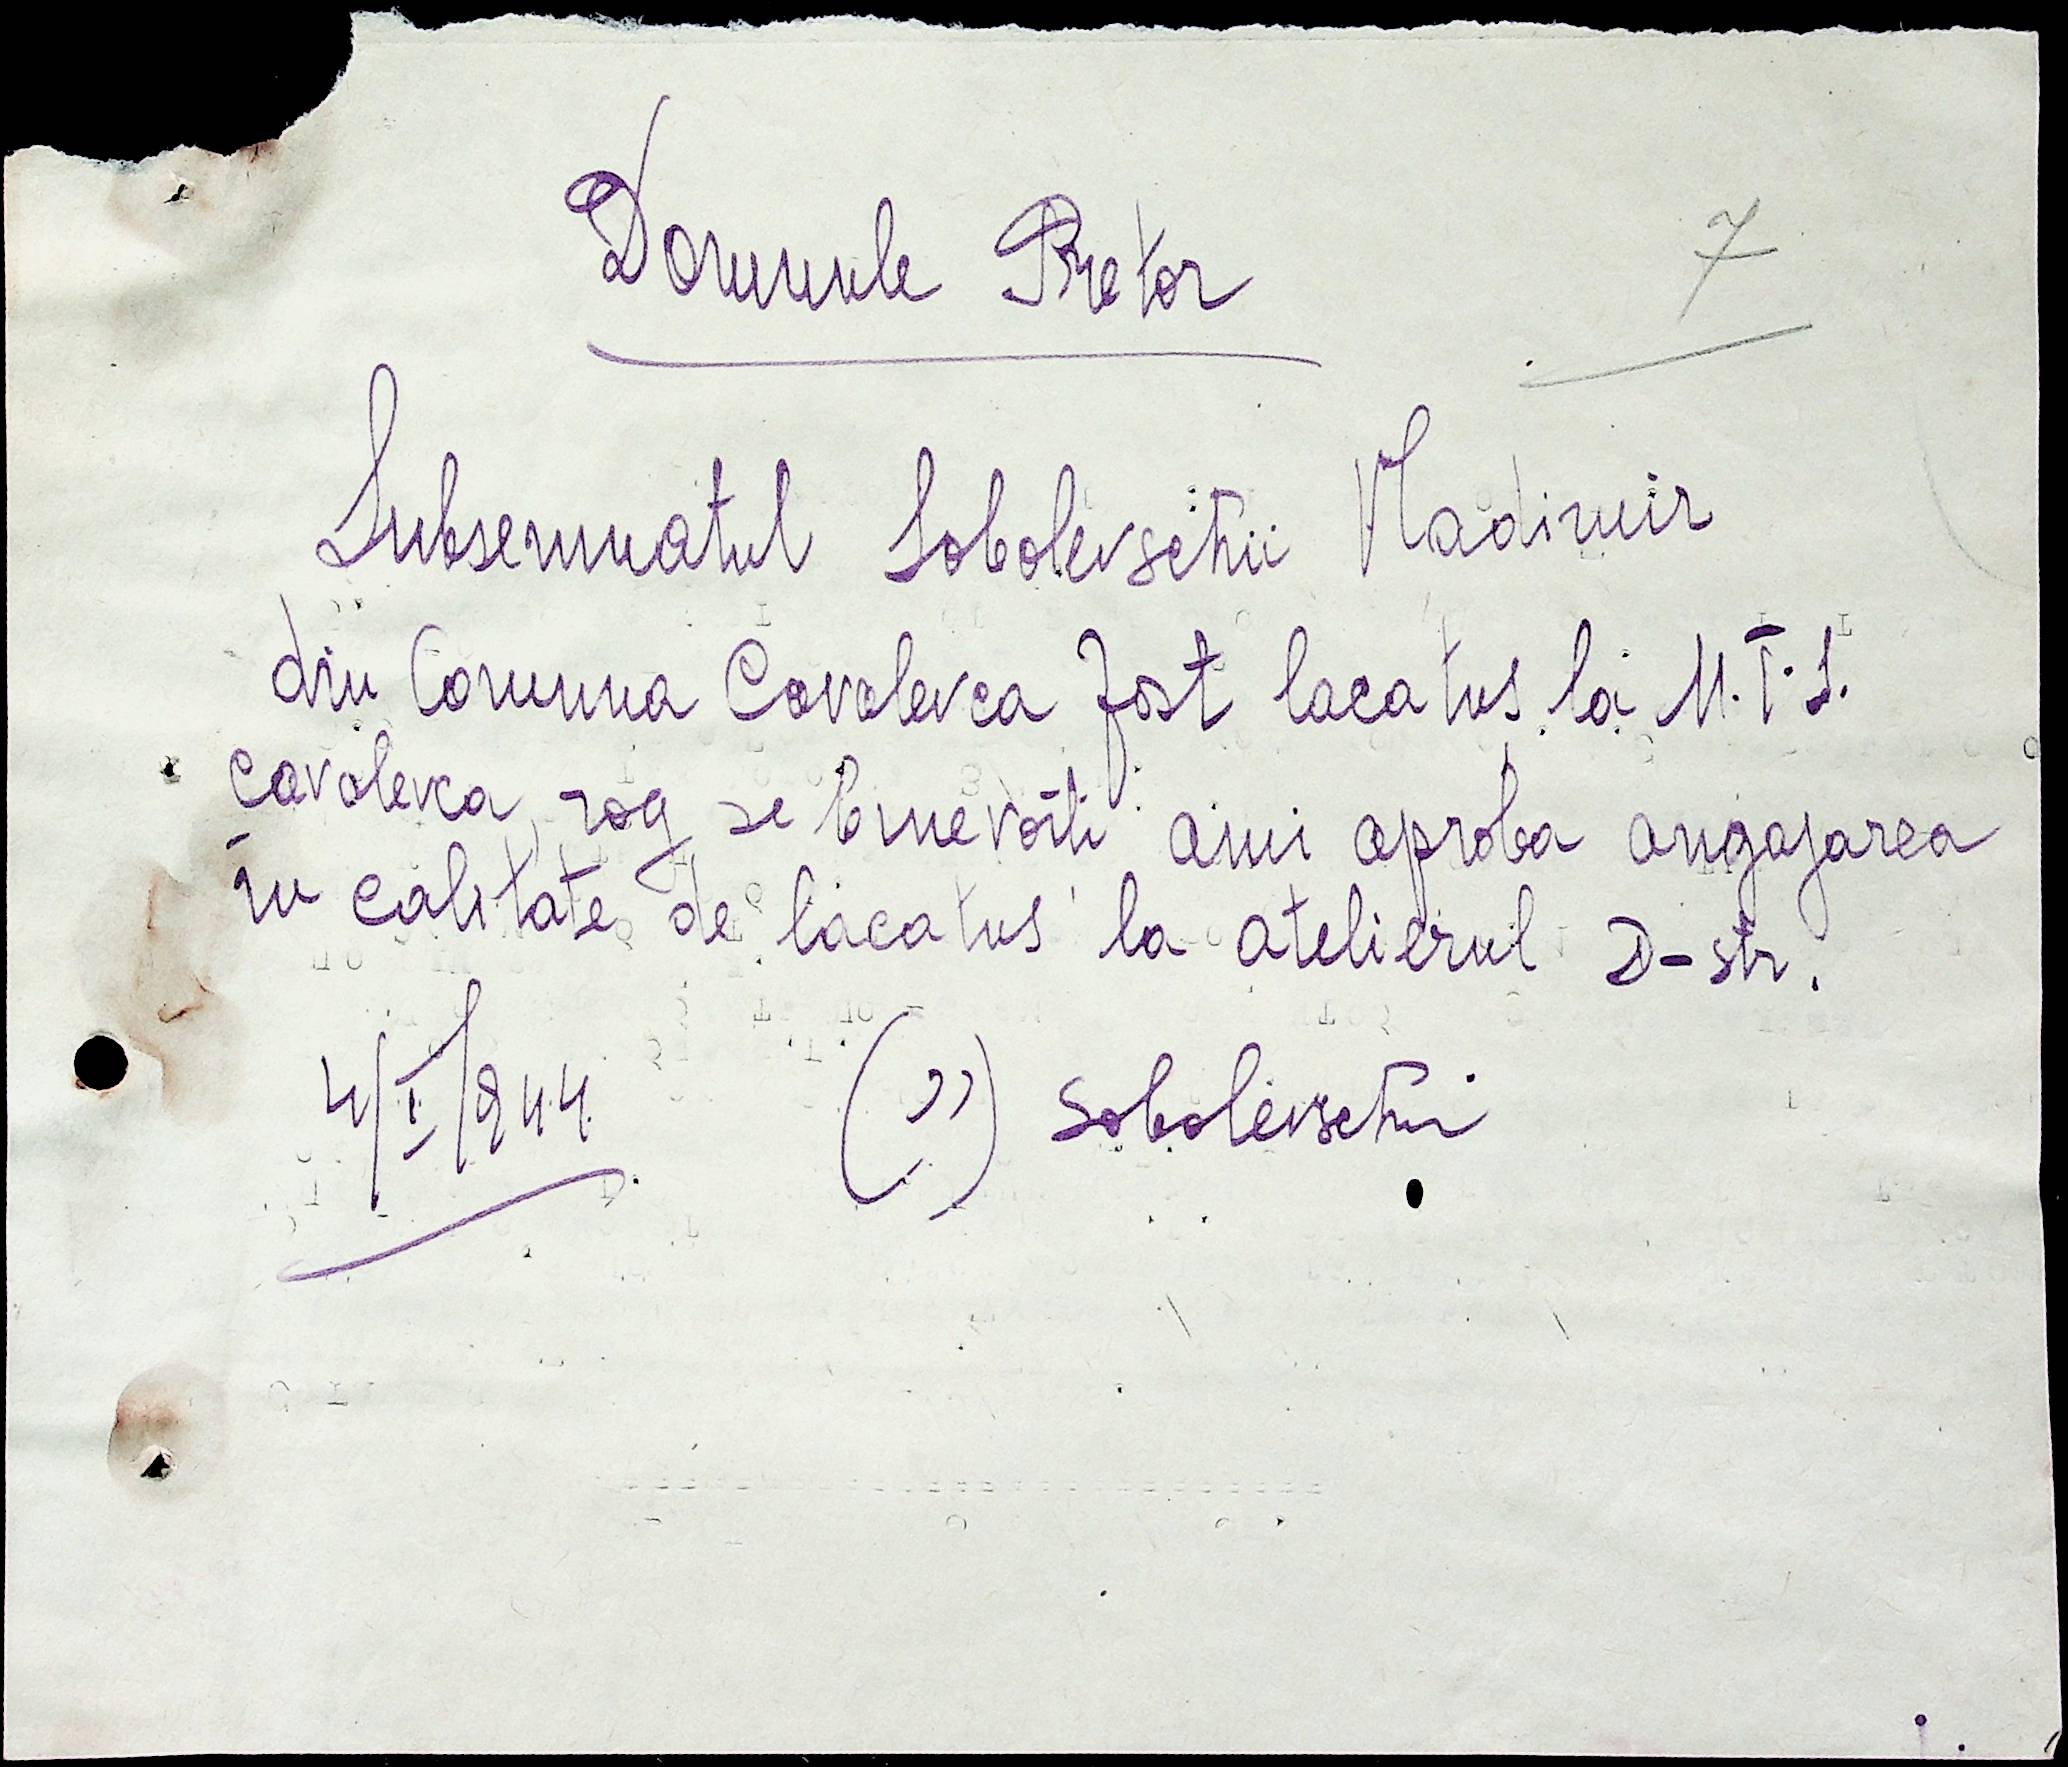 Domnule Pretor
7
Subsemnatul Sobolevschii Vladimir
din Comuna Covalevca fost lacatus la M.T.S.
Covalevca, rog se binevoiti ami aproba angajarea
în calitate de lacatus la atelierul D-str.
4/I/944 (") Sobolevschi